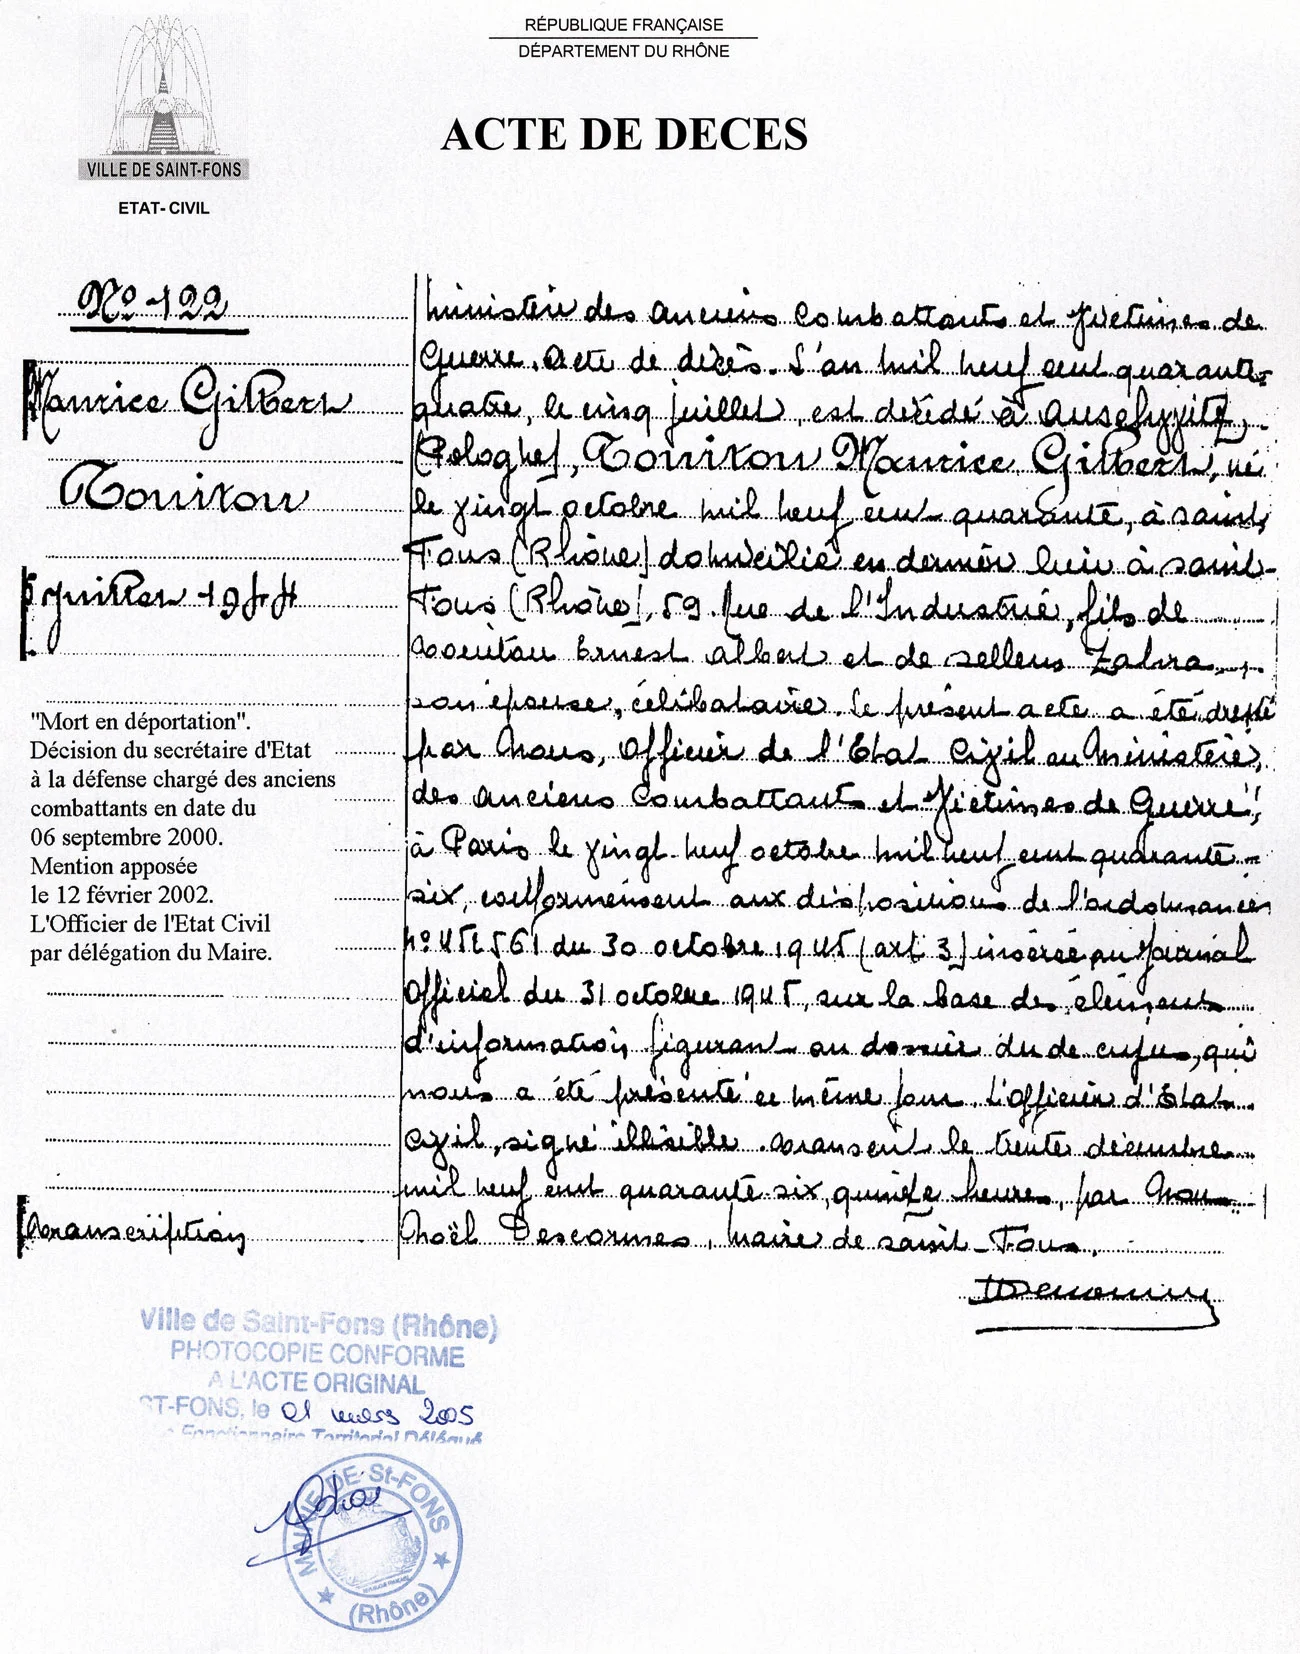 RÉPUBLIQUE FRANÇAISE
DÉPARTEMENT DU RHÔNE
ACTE DE DECES
VILLE DE SAINT-FONS
ETAT- CIVIL
No 122
Maurice Gilbert
Touitou
5 juillet 1944
"Mort en déportation".
Décision du secrétaire d'Etat
à la défense chargé des anciens
combattants en date du
06 septembre 2000.
Mention apposée
le 12 février 2002.
L'Officier de l'Etat Civil
par délégation du Maire.
Transcription
Ministère des Anciens Combattants et Victimes de
Guerre. Acte de décès. L'an mil neuf cent quarante-
quatre, le cinq juillet, est décédé à Auschwitz
(Pologne), Touitou Maurice Gilbert, né
le vingt octobre mil neuf cent quarante, à saint
Fons (Rhône) domicilié en dernier lieu à saint-
Fons (Rhône), 59 Rue de l'Industrie, fils de
Touitou Ernest Albert et de sellem Zahra,
son épouse, célibataire. Le présent acte a été dressé
par Nous, Officier de l'Etat Civil au Ministère,
des Anciens Combattants et Victimes de Guerre,
à Paris le vingt neuf octobre mil neuf cent quarante
six, conformément aux dispositions de l'ordonnance
n° 45 2561 du 30 octobre 1945 (art 3) insérée au Journal
Officiel du 31 octobre 1945, sur la base des éléments
d'information figurant au dossier du de cujus, qui
nous a été présenté ce même jour. L'officier d'Etat
Civil, signé illisible. Transcrit le trente décembre
mil neuf cent quarante six, quinze heures, par Nous
Noël Descormes, Maire de saint-Fons.
Ville de Saint-Fons (Rhône)
PHOTOCOPIE CONFORME
A L'ACTE ORIGINAL
ST-FONS, le 01 mars 2005
Fonctionnaire Territorial Délégué
MAIRIE DE St-FONS
(Rhône)